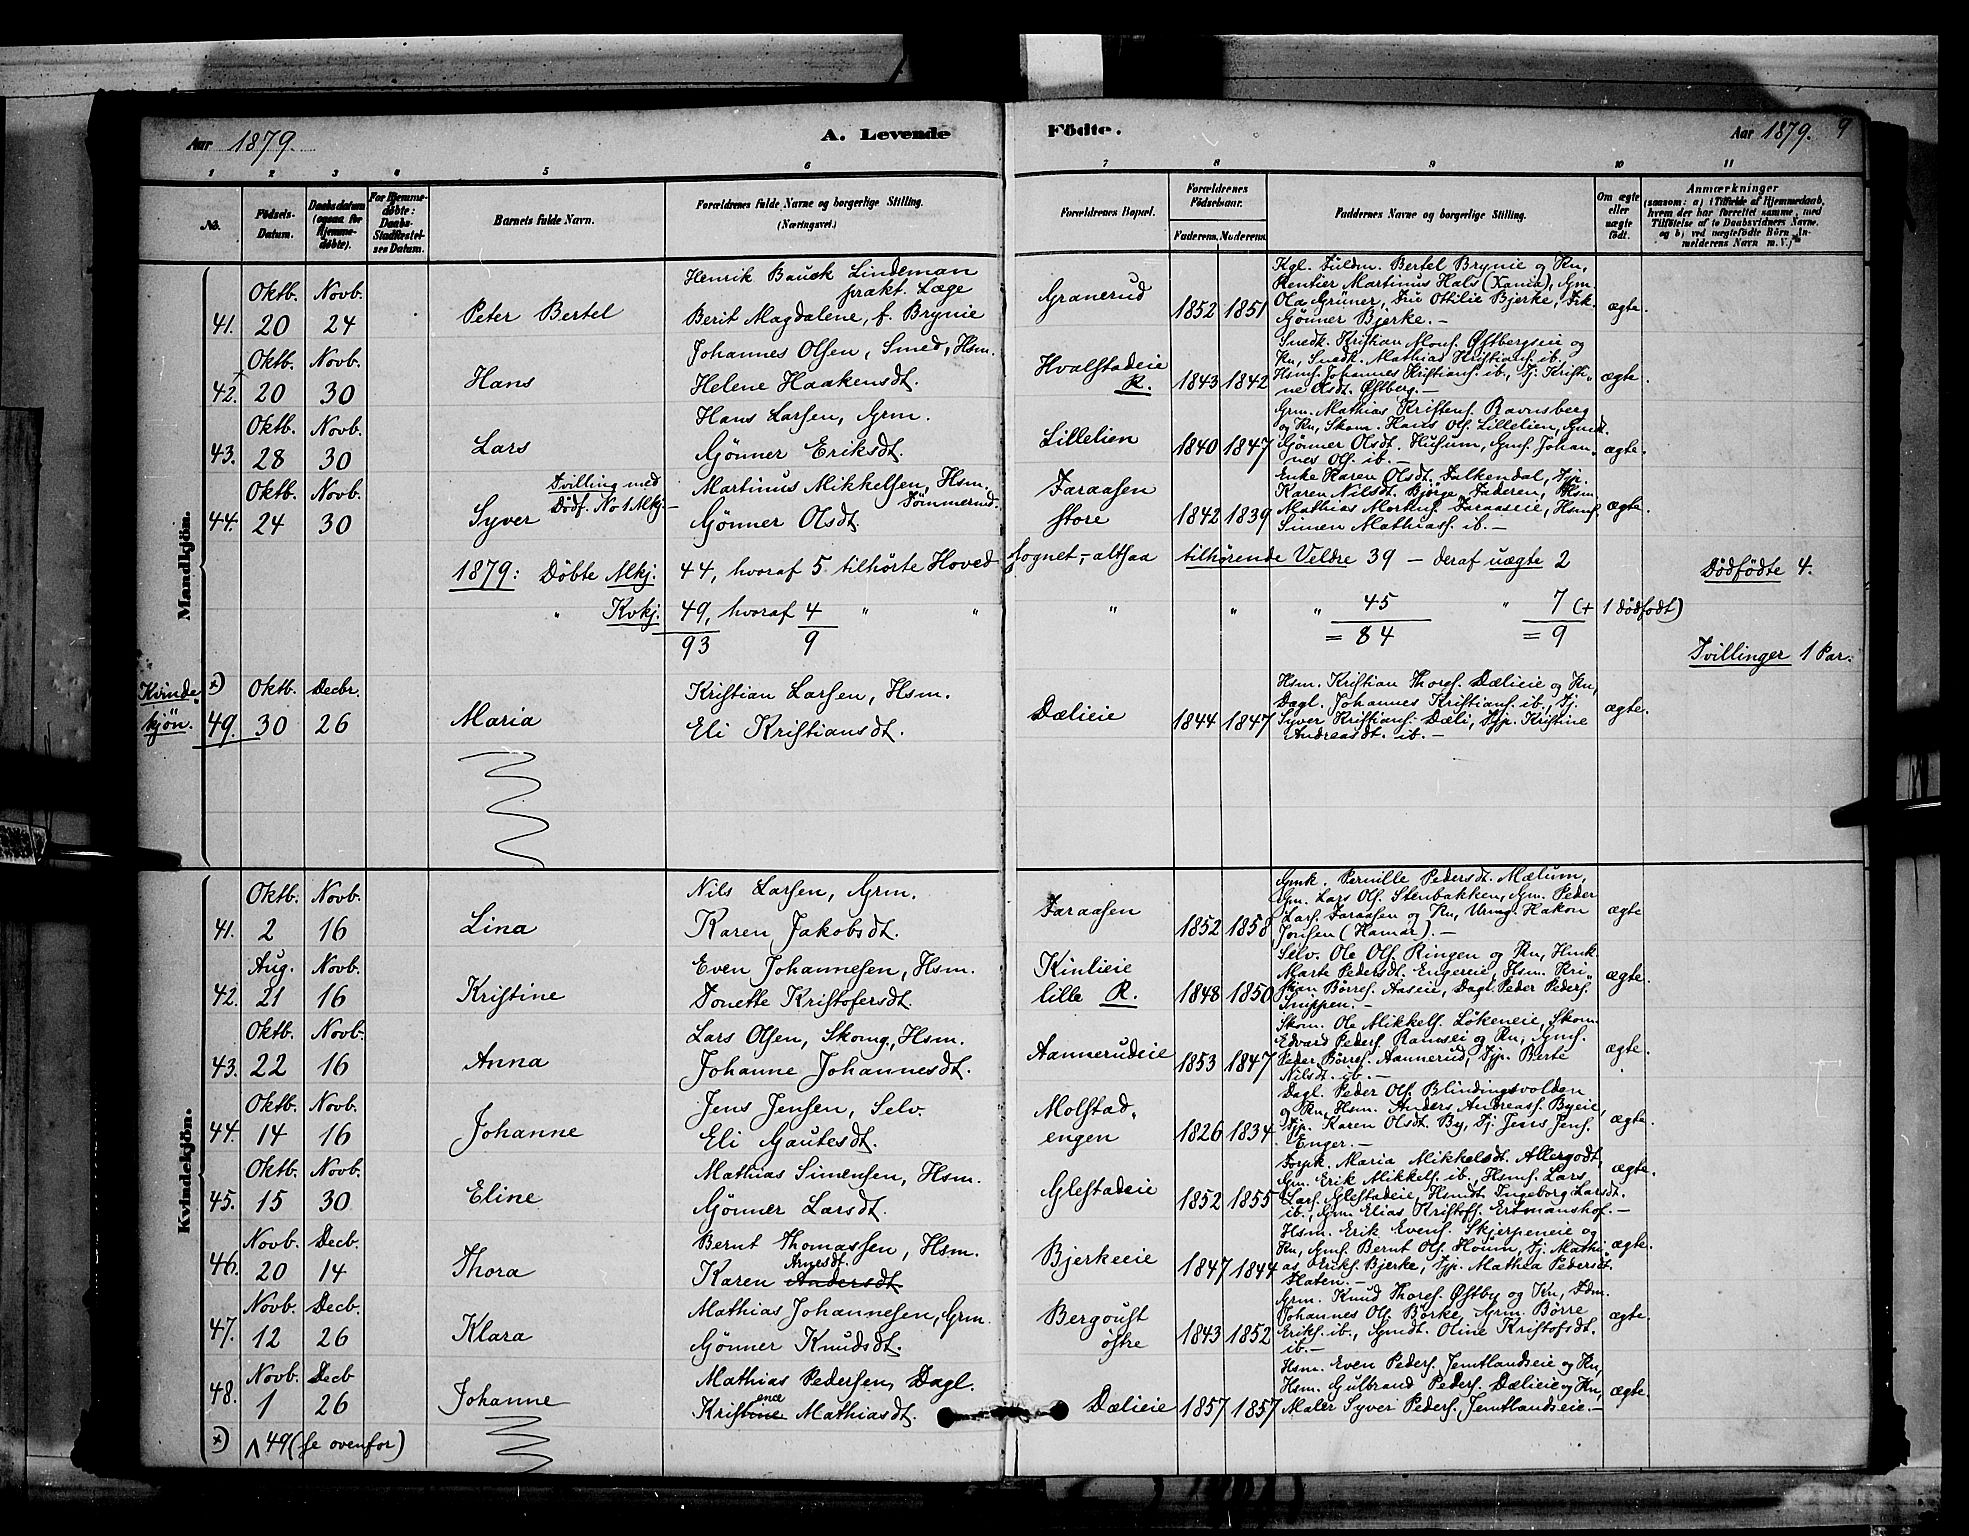 Aar 1879. A. Levende Födte. Aar 1879. 9
1 2 3 4 5 6 7 8 9 10 11
No.
Födsels-Datum.
Daabsdatum (ogsaa for Hjemmedöbte).
For Hjemmedöbte: Daabs-Stadfæstelses Datum.
Barnets fulde Navn.
Forældrenes fulde Navne og borgerlige Stilling. (Næringsvei.)
Forældrenes Bopæl.
Forældrenes Födselsaar.
Faderens. Moderens.
Faddernes Navne og borgerlige Stilling.
Om ægte eller uægte födt.
Anmærkninger
(saasom: a) i Tilfælde af Hjemmedaab, hvem der har forrettet samme, med Tilföielse af to Daabsvidners Navne, og b) ved uægtefödte Börn Anmelderens Navn m. V.)
Mandkjön.
41. Oktb. 20 Novb. 24 Peter Bertel
Henrik Bausk Lindeman
prakt. Læge
Berit Magdalene, f. Brynie
Granerud 1852 1851
Kgl. Fuldm. Bertel Brynie og Kn,
Rentier Martinus Hals (Kania), Gm.
Ola Grüner, Fru Ottilie Bjerke, Frk.
Gönner Bjerke. –
ægte.
42. Oktb. 20 Novb. 30 Hans
Johannes Olsen, Smed, Hsm.
Helene Haakensdt.
Hvalstadeie R. 1843 1842
Snedk. Kristian Mons. Østbergseie og
Kn, Snedk. Mathias Kristians. ib.,
Hsms. Johannes Kristians. ib., Pj. Kristi-
ne Olsdt. Østberg. –
ægte.
43. Oktb. 28 Novb. 30 Lars
Hans Larsen, Grm.
Gönner Eriksdt.
Lillelien 1840 1847
Grm. Mathias Kristens. Ravnsberg
og Kn, Skom. Hans Ols. Lillelien, Gmdt.
Gönner Olsdt. Husum, Gms. Johan-
nes Ols. ib. –
ægte.
44. Oktb. 24 Novb. 30 Syver
Tvilling med
Dödf. No 1 Mkj. –
Martinus Mikkelsen, Hsm.
Tömmermd.
Gönner Olsdt.
Faraasen store 1842 1839
Enke Karen Olsdt. Falkendal, Pjp.
Karen Nilsdt. Bjørge, Faderen, Hsm.
Mathias Mortens. Faraaseie, Hsms.
Simen Mathiass. ib. –
ægte.
1879: Döbte Mkj. 44, hvoraf 5 tilhörte Hovedsognet, – altsaa tilhörende Veldre 39 – deraf uægte 2 Dödfödte 4.
" Kvkj. 49, hvoraf 4 " " " " " 45 " 7 (+ 1 dödfödt)
93 9 = 84 = 9
Tvillinger 1 Par.
Kvindekjön.
×) 49. Oktb. 30 Decbr. 26 Maria
Kristian Larsen, Hsm.
Eli Kristiansdt.
Dælieie 1844 1847
Hsm. Kristian Thores. Dælieie og Kn,
Dagl. Johannes Kristians. ib., Pj.
Syver Kristians. Dæli, Pjp. Kristine
Andreasdt. ib. –
ægte.
Kvindekjön.
41. Oktb. 2 Novb. 16 Lina
Nils Larsen, Grm.
Karen Jakobsdt.
Faraasen 1852 1858
Gmk. Pernille Pedersdt. Mælum,
Gm. Lars Ols. Stenbakken, Gm. Peder
Lars. Faraasen og Kn, Urmg. Hakon
Jonsen (Hamar). –
ægte
42. Aug. 21 Novb. 16 Kristine
Even Johannesen, Hsm.
Tonette Kristofersdt.
Kinlieie lille R. 1848 1850
Selv. Ole Ols. Ringen og Kn, Hsmk.
Marte Pedersdt. Engereie, Hsm. Kri-
stian Börres. Aaseie, Dagl. Peder Peders.
Snippen. –
ægte.
43. Oktb. 22 Novb. 16 Anna
Lars Olsen, Skomg., Hsm.
Johanne Johannesdt.
Aannerudeie 1853 1847
Skom. Ole Mikkels. Lökeneie, Skom.
Edvard Peders. Ramsei og Kn, Gms.
Peder Börres. Aannerud, Pjp. Berte
Nilsdt. ib. –
ægte.
44. Oktb. 14 Novb. 16 Johanne
Jens Jensen, Selv.
Eli Gautesdt.
Molstad-
engen 1826 1834
Dagl. Peder Ols. Blindingsvolden
og Kn, Hsm. Anders Andreass. Byeie,
Pjp. Karen Olsdt. By, Pj. Jens Jens.
Enger. –
ægte.
45. Oktb. 15 Novb. 30 Eline
Mathias Simensen, Hsm.
Gönner Larsdt.
Glestadeie 1852 1855
Forpk. Maria Mikkelsdt. Allergodt,
Gm. Erik Mikkels. ib., Hsms. Lars
Lars. Glestadeie, Hsmdt. Ingeborg Larsdt.
ib., Grm. Elias Kristoff. Ertmanshof. –
ægte.
46. Novb. 20 Decb. 14 Thora
Bernt Thomassen, Hsm.
Arnesdt.
Karen Andersdt.
Bjerkeeie 1847 1844
Hsm. Erik Evens. Skjerpeneie og
Kn, Gms. Bernt Ols. Houm, Pj. Mathi-
as Eriks. Bjerke, Pjp. Mathea Pedersdt.
Flaten. –
ægte.
47. Novb. 12 Decb. 26 Klara
Mathias Johannesen, Grm.
Gönner Knudsdt.
Bergoust östre 1843 1852
Grm. Knud Thores. Østby og Kn, Fdm.
Johannes Ols. Börke, Grm. Börre
Eriks. ib., Gmdt. Oline Kristofsdt.
ib. –
ægte.
48. Novb. 1 Decb 26 Johanne
Mathias Pedersen, Dagl.
ence
Kristine Mathiasdt.
Dælieie 1857 1857
Hsm. Even Peders. Jemtlandseie og Kn,
Hsm. Gulbrand Peders. Dælieie og Kn,
Maler Syver Peders. Jemtlandseie. –
ægte.
×) 49 (se ovenfor)